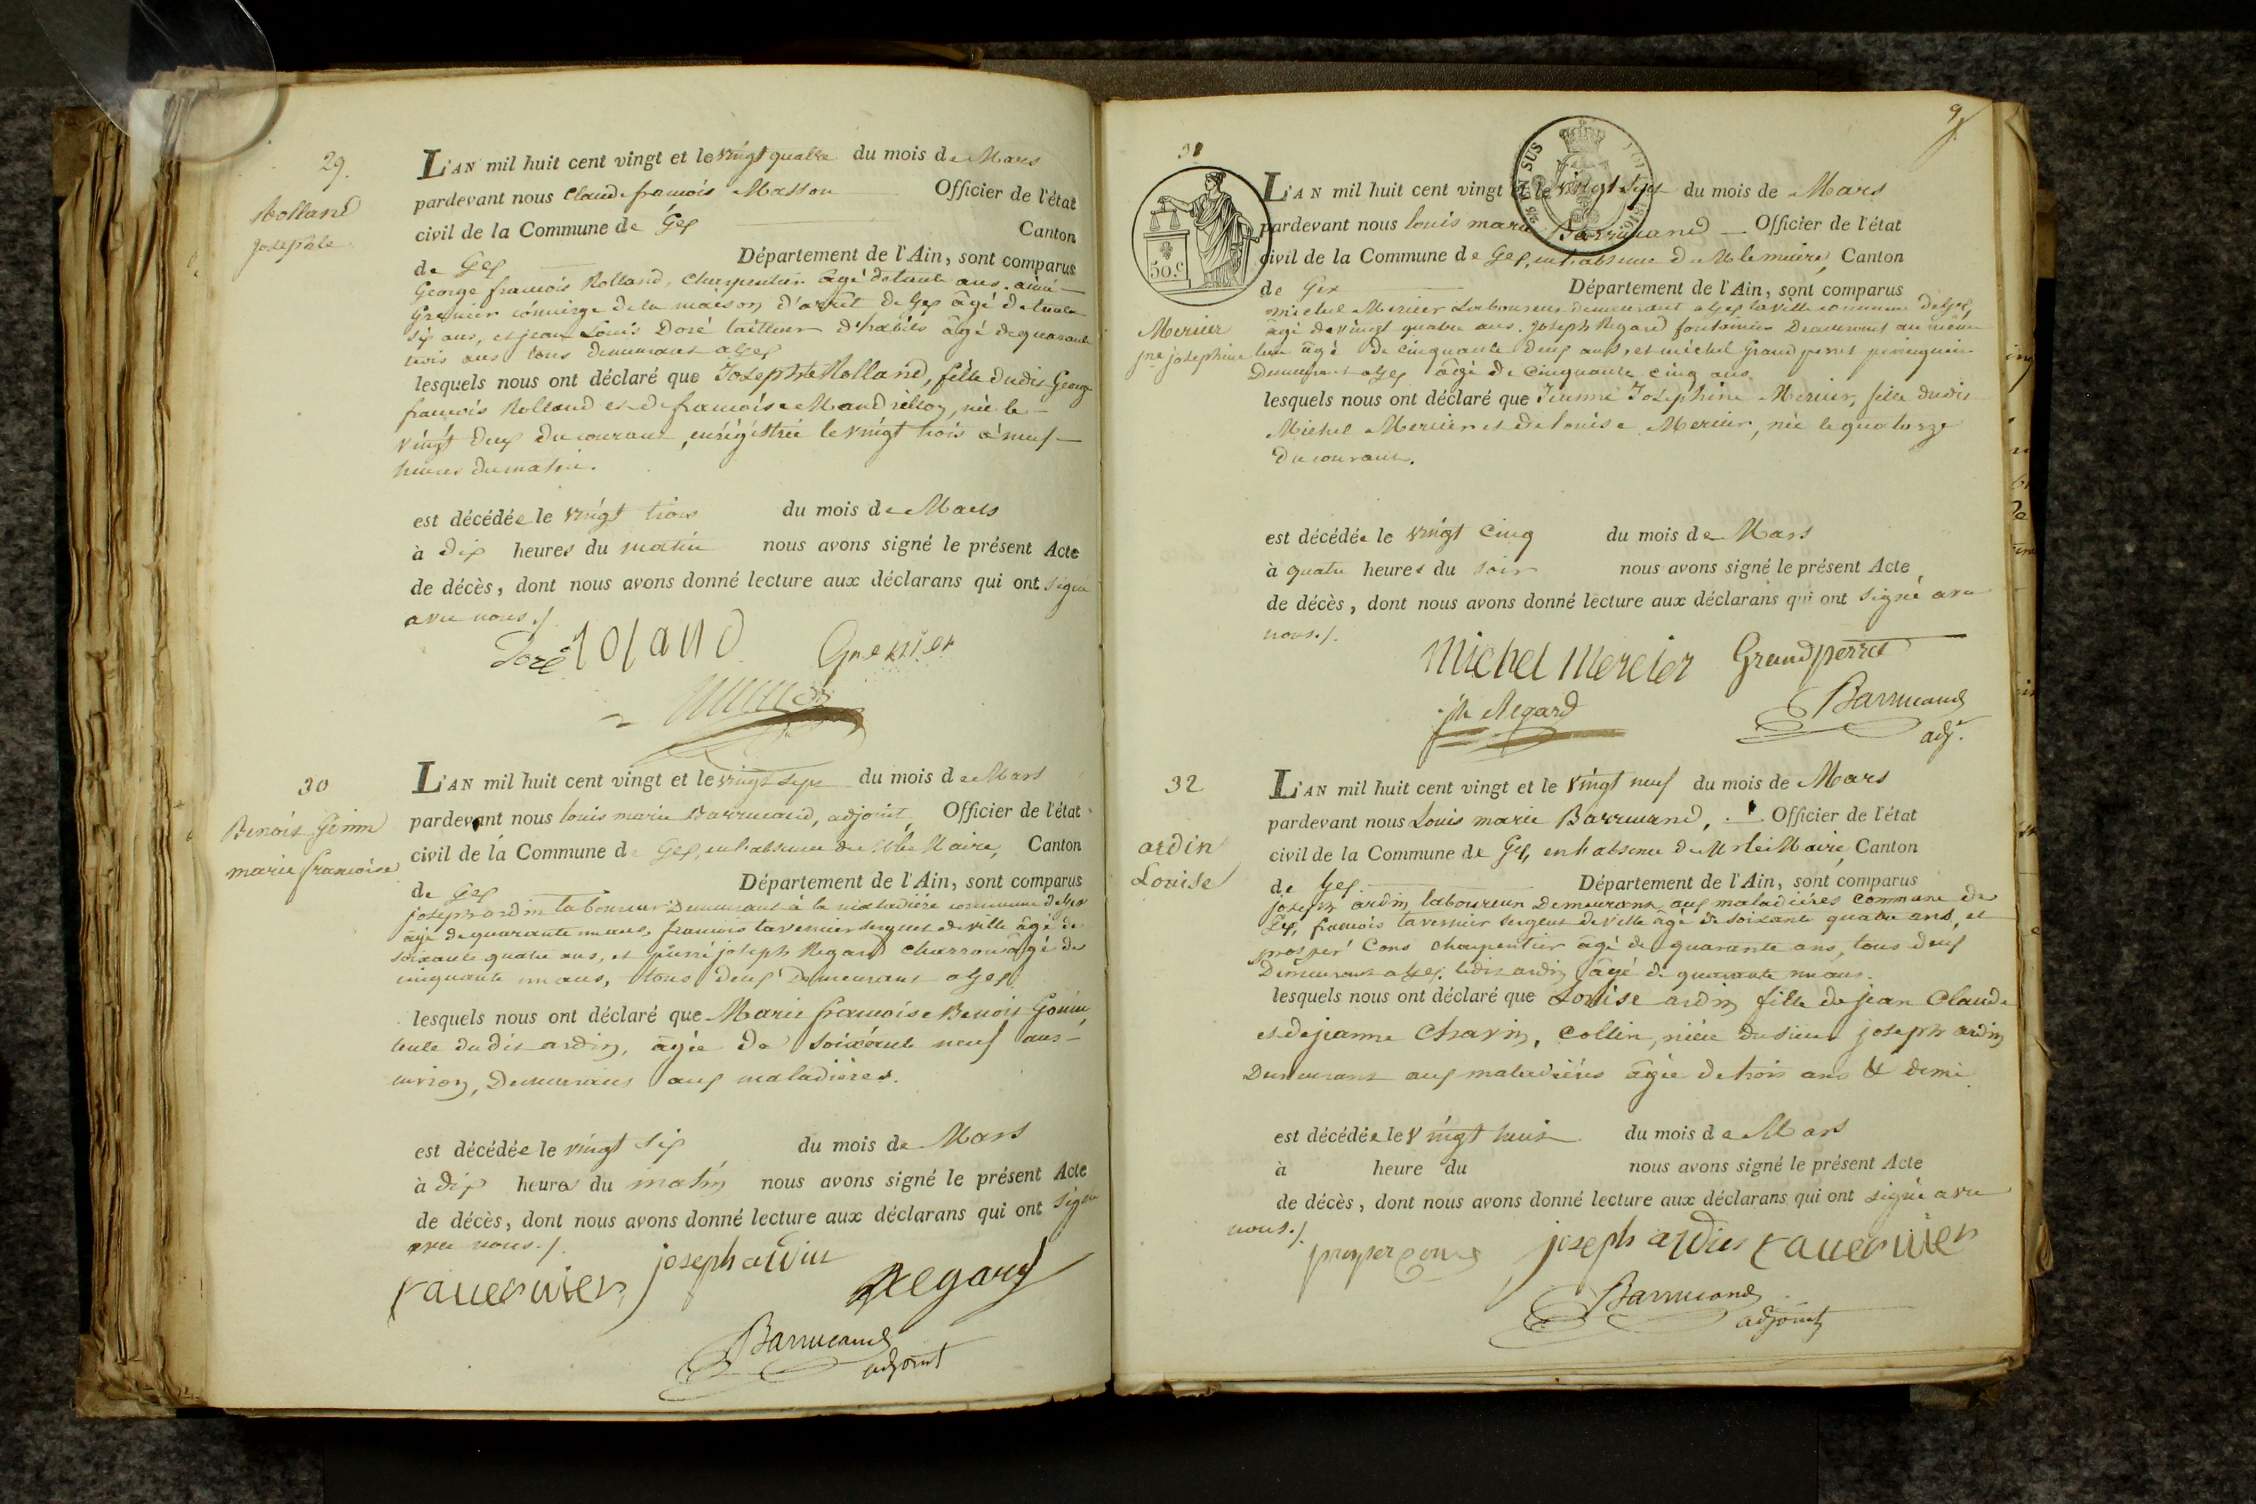 29.
Rolland
Josephte
L'AN mil huit cent vingt et le vingt quatre du mois de Mars
pardevant nous Claude françois Masson Officier de l'état
civil de la Commune de Gex Canton
de Gex Département de l'Ain, sont comparus
George françois Rolland, Charpentier âgé de trente ans. aimé
Grenier concierge de la maison d'arrêt de Gex âgé de trente
six ans, et jean Louis Doré tailleur d'habits âgé de quarante
trois ans tous demeurant a Gex
lesquels nous ont déclaré que Josephte Rolland, fille dudit George
françois Rolland et de françoise Mandrillon, née le
vingt deux du courant, enrégistrée le vingt trois à neuf
heures du matin.
est décédée le vingt trois du mois de Mars
à dix heures du matin nous avons signé le présent Acte
de décès, dont nous avons donné lecture aux déclarans qui ont signé
avec nous./.
Doré Roland Grenier
30
Benoit Gonin
marie françoise
L'AN mil huit cent vingt et le vingt sept du mois de Mars
pardevant nous louis marie Barrucand, adjoint, Officier de l'état
civil de la Commune de Gex, en l'absence de Mr le Maire, Canton
de Gex Département de l'Ain, sont comparus
joseph ardin laboureur Demeurant à la maladière commune de Gex
âgé de quarante un ans, françois tavernier sergent de ville âgé de
soixante quatre ans, et pierre joseph Regard Charron âgé de
cinquante un ans, tous deux Demeurant a Gex
lesquels nous ont déclaré que Marie françoise Benoit Gonin,
tente dudit ardin, âgée de soixante neuf ans
environ, Demeurant aux maladières.
est décédée le vingt six du mois de Mars
à dix heures du matin nous avons signé le présent Acte
de décès, dont nous avons donné lecture aux déclarans qui ont signé
avec nous./.
tavernier joseph ardin Regard
Barrucand
adjoint
9
31
50.c
Mercier
jne josephine
L'AN mil huit cent vingt et le vingt sept du mois de Mars
pardevant nous louis marie Barrucand Officier de l'état
civil de la Commune de Gex, en l'absence de Mr le maire, Canton
de Gex Département de l'Ain, sont comparus
michel Mercier Laboureur demeurant a Gex la ville commune de Gex,
âgé de vingt quatre ans. joseph Regard fontainier Demeurant au même
lieu âgé de cinquante deux ans, et michel Grandperret perruquier
Demeurant a Gex âgé de Cinquante cinq ans
lesquels nous ont déclaré que Jeanne Joséphine Mercier, fille dudit
Michel Mercier et de louise Mercier, née le quatorze
du courant.
est décédée le vingt cinq du mois de Mars
à quatre heures du soir nous avons signé le présent Acte
de décès, dont nous avons donné lecture aux déclarans qui ont signé avec
nous./.
Michel Mercier Grandperret
jh Regard Barrucand
adj.
32
ardin
Louise
L'AN mil huit cent vingt et le vingt neuf du mois de Mars
pardevant nous Louis marie Barrucand, Officier de l'état
civil de la Commune de Gex, en l'absence de Mr le Maire, Canton
de Gex Département de l'Ain, sont comparus
joseph ardin, laboureur Demeurant aux maladières commune de
Gex, françois tavernier sergent de ville âgé de soixante quatre ans, et
prosper Cons charpentier âgé de quarante ans, tous deux
Demeurant a Gex. ledit ardin âgé de quarante un ans.
lesquels nous ont déclaré que Louise ardin fille de jean Claude
et de jeanne Chavin, Collin, niéce du sieur joseph ardin
Demeurant aux maladières âgée de trois ans & demi
est décédée le vingt huit du mois de Mars
à heure du nous avons signé le présent Acte
de décès, dont nous avons donné lecture aux déclarans qui ont signé avec
nous./.
prosper Cons joseph ardin tavernier
Barrucand
adjoint